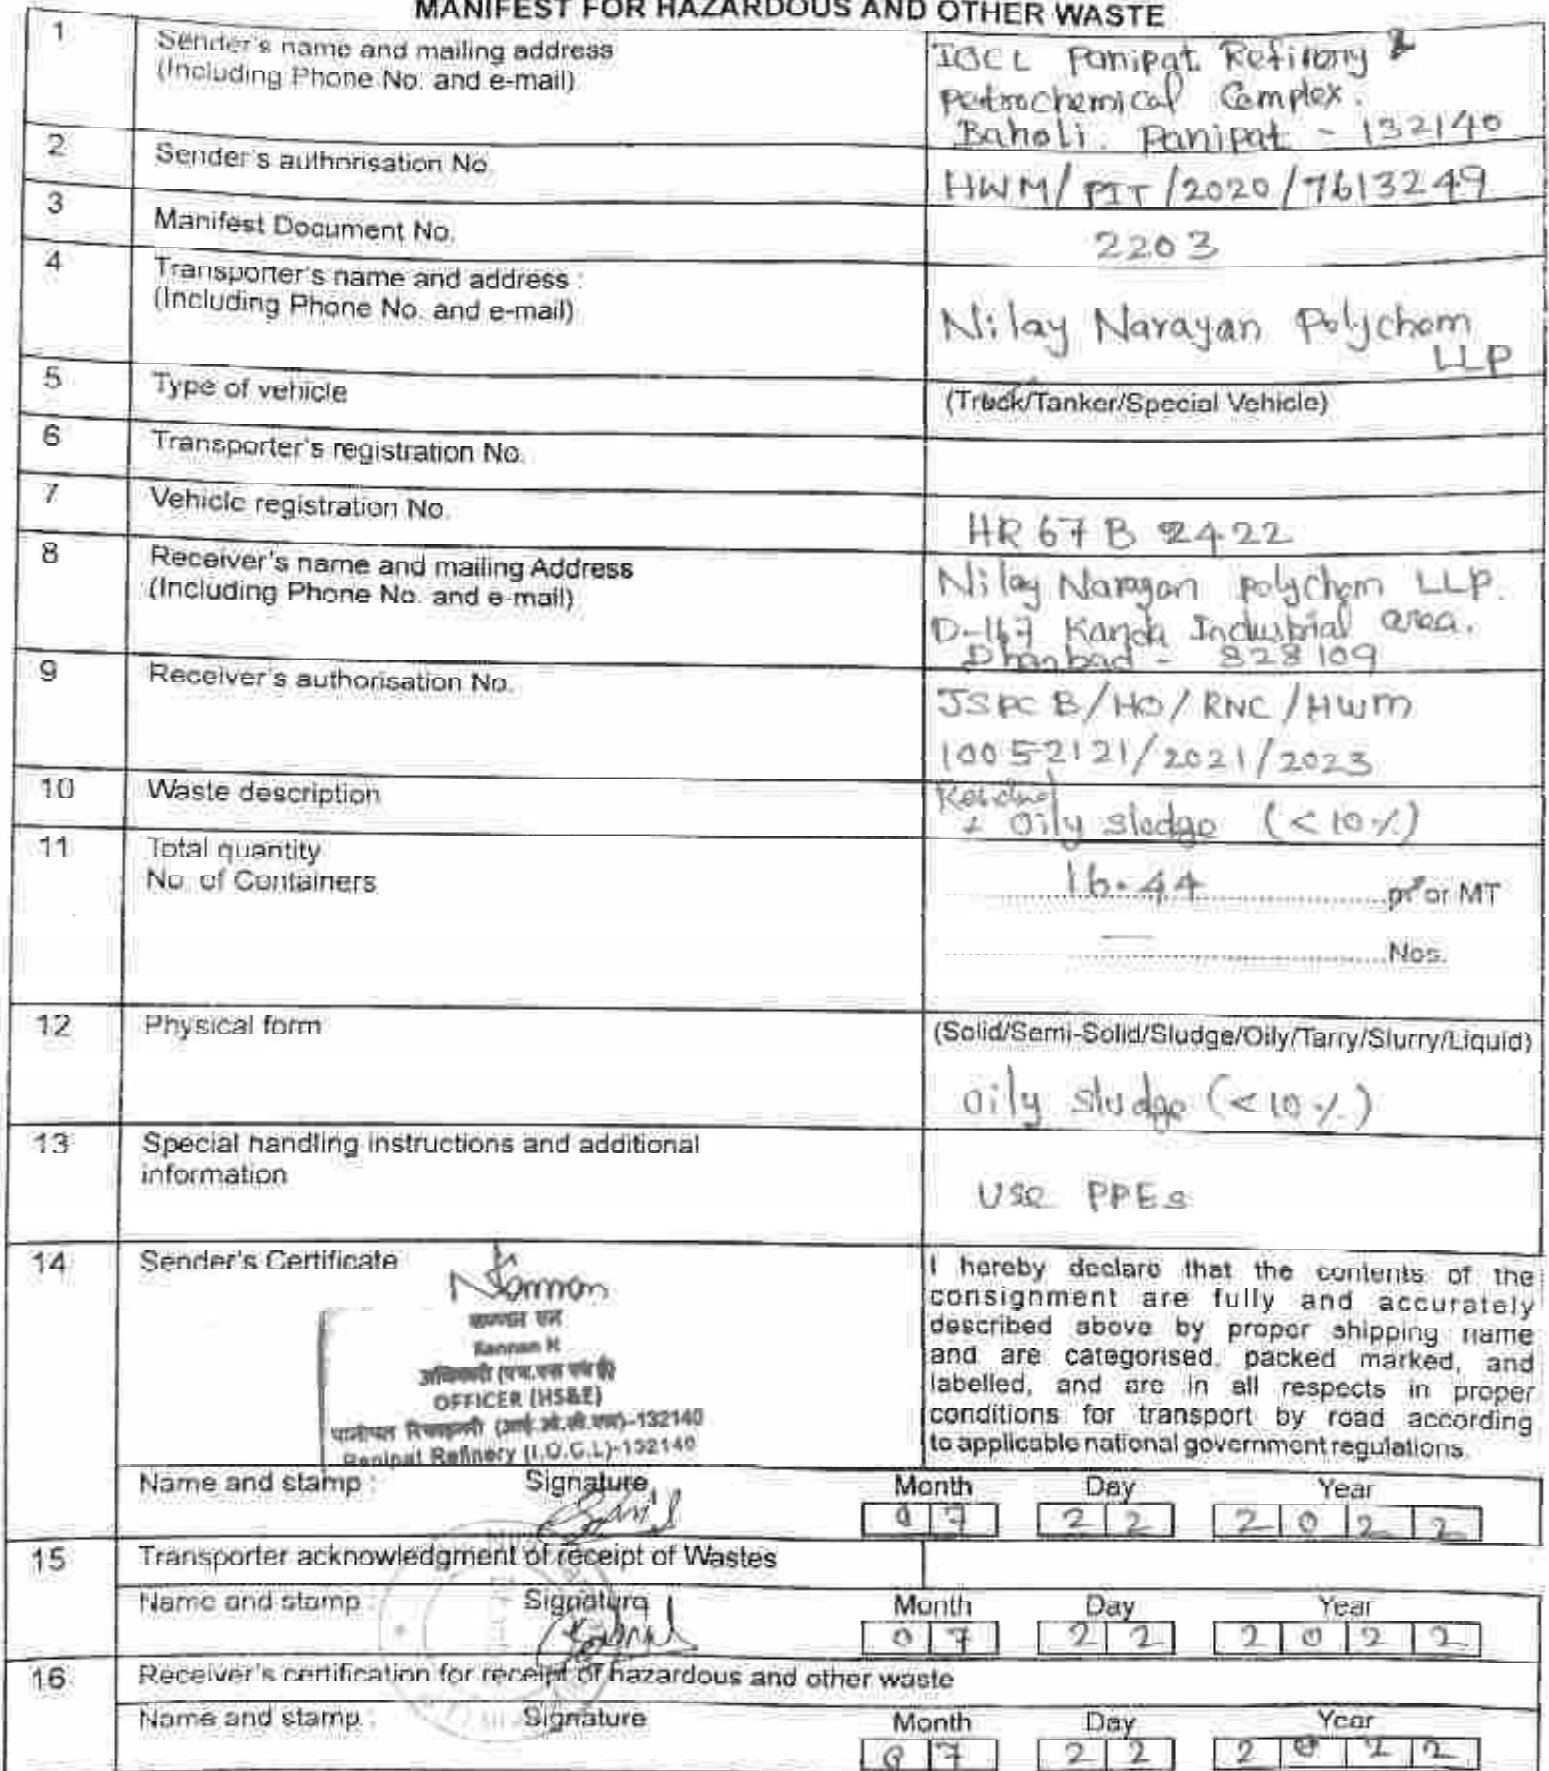 MANIFEST FOR HAZARDOUS AND OTHER WASTE
1 Sender's name and mailing address
(Including Phone No. and e-mail)
IOCL Panipat Refinery &
Petrochemical Complex.
Baholi. Panipat - 132140
2 Sender's authorisation No.
HWM/PIT/2020/7613249
3 Manifest Document No.
2203
4 Transporter's name and address :
(Including Phone No. and e-mail)
Nilay Narayan Polychem
LLP
5 Type of vehicle
(Truck/Tanker/Special Vehicle)
6 Transporter's registration No.
7 Vehicle registration No.
HR 67 B 2422
8 Receiver's name and mailing Address
(Including Phone No. and e-mail)
Nilay Narayan polychem LLP.
D-167 Kanda Industrial area.
Dhanbad - 828109
9 Receiver's authorisation No.
JSPCB/HO/RNC/HWM
10052121/2021/2023
10 Waste description
Oily sludge (<10%)
11 Total quantity
No. of Containers
16.44 or MT
Nos.
12 Physical form
(Solid/Semi-Solid/Sludge/Oily/Tarry/Slurry/Liquid)
oily sludge (<10%)
13 Special handling instructions and additional
information
USE PPEs
14 Sender's Certificate
Kannan N
OFFICER (HS&E)
पानीपत रिफाइनरी (आई.ओ.सी.एल)-132140
Panipat Refinery (I.O.C.L)-132140
I hereby declare that the contents of the
consignment are fully and accurately
described above by proper shipping name
and are categorised, packed marked, and
labelled, and are in all respects in proper
conditions for transport by road according
to applicable national government regulations.
Name and stamp : Signature Month Day Year
07 22 2022
15 Transporter acknowledgment of receipt of Wastes
Name and stamp : Signature Month Day Year
07 22 2022
16 Receiver's certification for receipt of hazardous and other waste
Name and stamp : Signature Month Day Year
07 22 2022